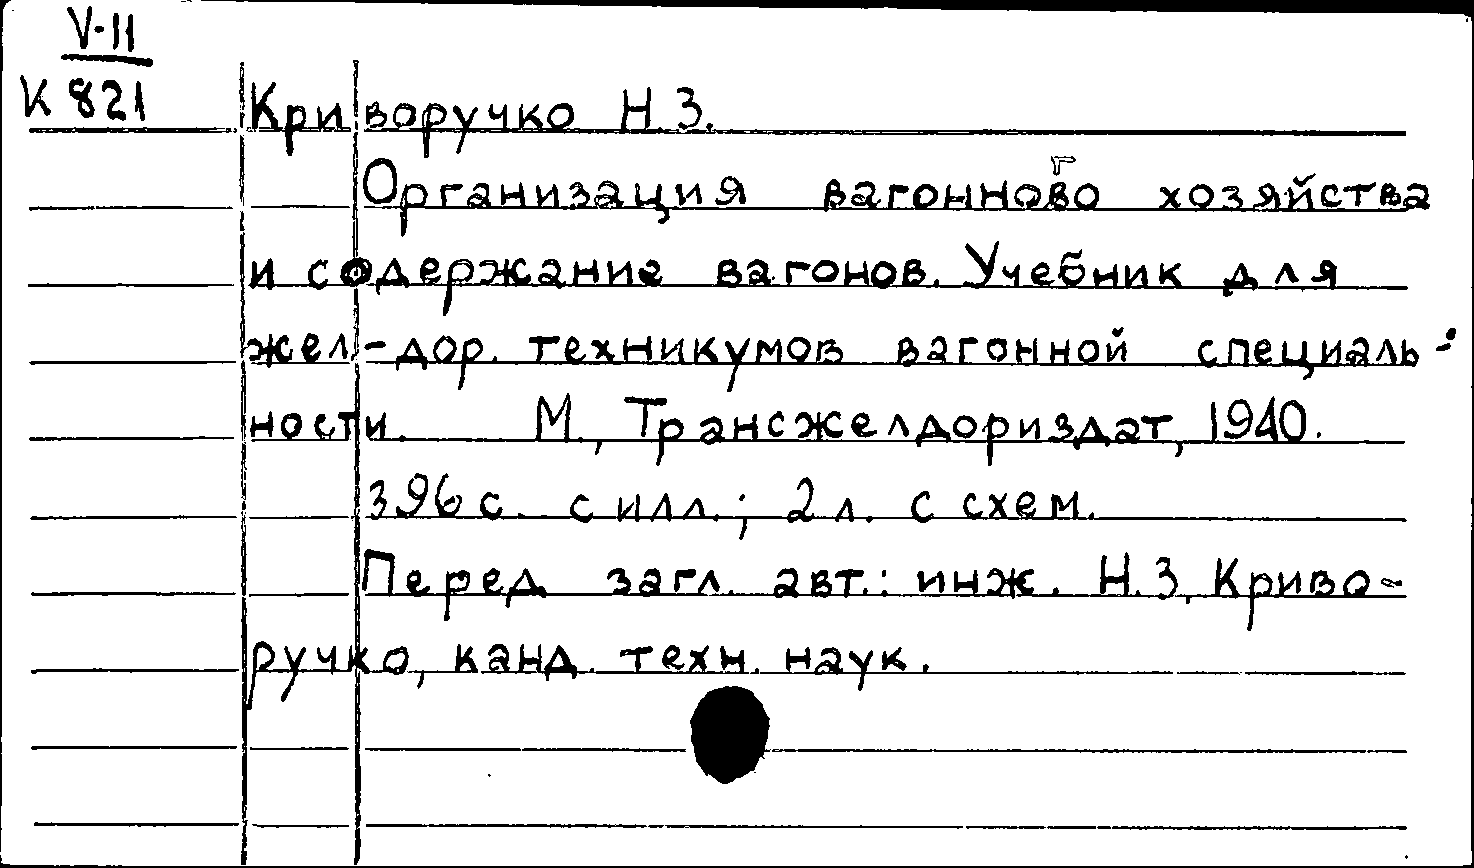 V-11
К 821
Криворучко Н.З.
Организация вагонново хозяйства
г
и содержание вагонов. Учебник для
жел.-дор. техникумов вагонной специаль-
ности. М., Трансжелдориздат, 1940.
396 с. с илл.; 2 л. с схем.
Перед загл. авт.: инж. Н.З. Криво-
ручко, канд. техн. наук.